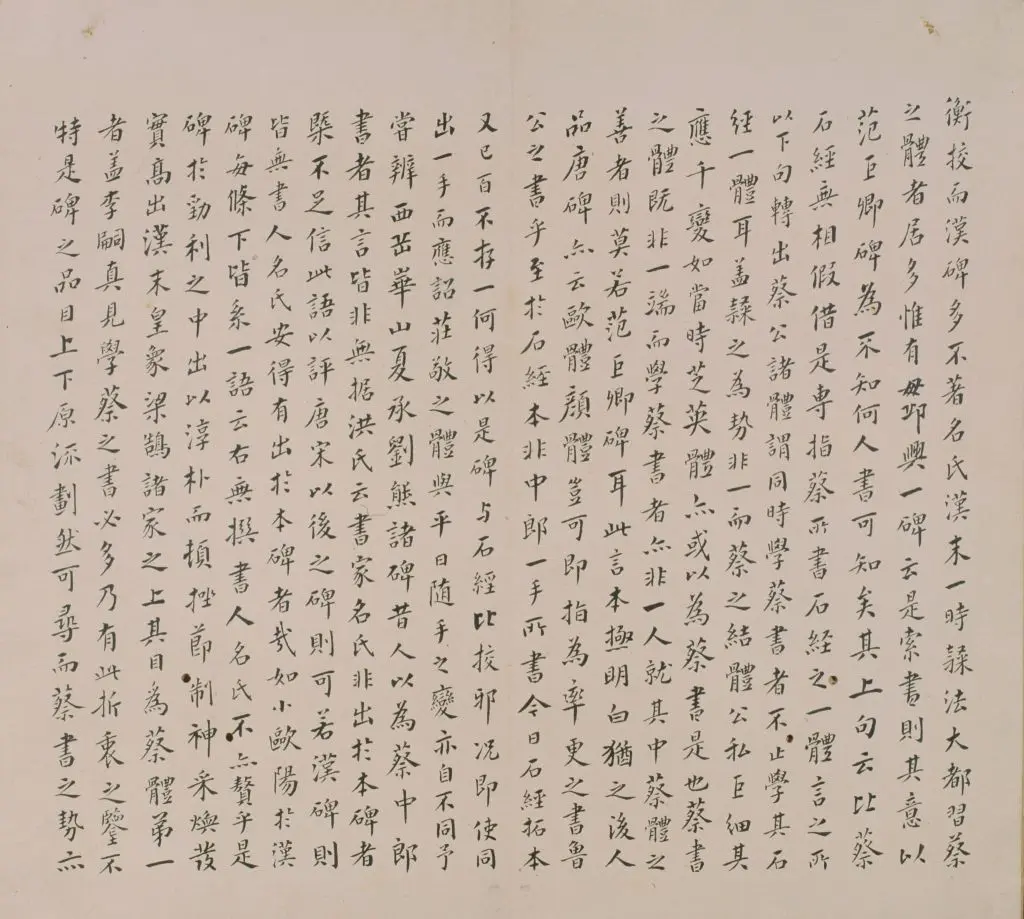 衡挍而漢碑多不著名氏漢末一時隸法大都習蔡
之體者居多惟有毋邱興一碑云是索書則其意以
范巨卿碑為不知何人書可知矣其上句云比蔡
石經無相假借是専指蔡所書石經之一體言之所
以下句轉出蔡公諸體謂同時學蔡書者不止學其石
經一體耳盖隸之為勢非一而蔡之結體公私巨細其
應千變如當時芝英體亦或以為蔡書是也蔡書
之體既非一端而學蔡書者亦非一人就其中蔡體之
善者則莫若范巨卿碑耳此言本極明白猶之後人
品唐碑亦云歐體顔體豈可即指為率更之書魯
公之書乎至於石經本非中郎一手所書今日石經拓本
又已百不存一何得以是碑与石經比挍邪况即使同
出一手而應詔莊敬之體與平日随手之變亦自不同予
嘗辨西岳華山夏承劉熊諸碑昔人以為蔡中郎
書者其言皆非無据洪氏云書家名氏非出於本碑者
槩不足信此語以評唐宋以後之碑則可若漢碑則
皆無書人名氏安得有出於本碑者㢤如小歐陽於漢
碑每條下皆系一語云右無撰書人名氏不亦贅乎是
碑於勁利之中出以淳朴而頓挫節制神采煥發
實髙出漢末皇象梁鵠諸家之上其目為蔡體第一
者盖李嗣真見學蔡之書必多乃有此折衷之鑒不
特是碑之品目上下原流劃然可尋而蔡書之勢亦